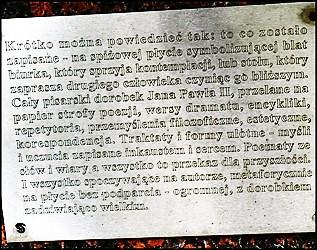 Krótko można powiedzieć tak: to co zostało
zapisane - na spiżowej płycie symbolizującej blat
biurka, który sprzyja kontemplacji, lub stołu, który
zaprasza drugiego człowieka czyniąc go bliższym.
Cały pisarski dorobek Jana Pawła II, przelane na
papier strofy poezji, wersy dramatu, encykliki,
repetytoria, przemyślenia filozoficzne, estetyczne,
korespondencja. Traktaty i formy ulotne - myśli
i uczucia zapisane inkaustem i sercem. Poematy ze
słów i wiary a wszystko to przekaz dla przyszłości.
I wszystko spoczywające na autorze, metaforycznie
na płycie bez podparcia - ogromnej, z dorobkiem
zadziwiająco wielkim.